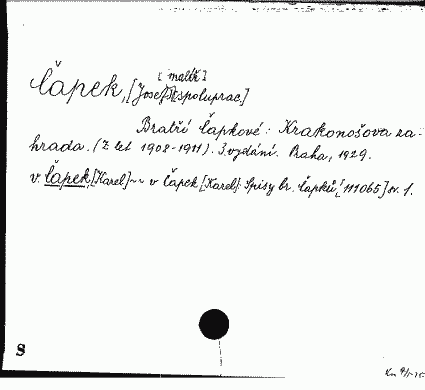 [malíř]
Čapek, [Josef] [spoluprac.]
Bratří Čapkové: Krakonošova za-
hrada. (Z let 1908-1911). 3. vydání. Praha, 1929.
v. Čapek, [Karel] ~~ v Čapek [Karel]: Spisy br. Čapků, [111065] sv. 1.
8